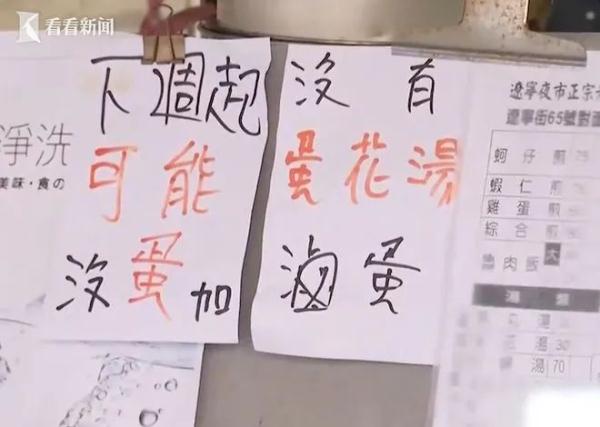 看看新闻
下週起
可能
沒蛋加
沒有
蛋花湯
滷蛋
淨洗
美味・食の
遼寧夜市正宗
遼寧街65號對面
蚵仔煎 75
蝦仁煎
雞蛋煎
綜合煎
魯肉飯 大
湯類
湯 30
湯 70